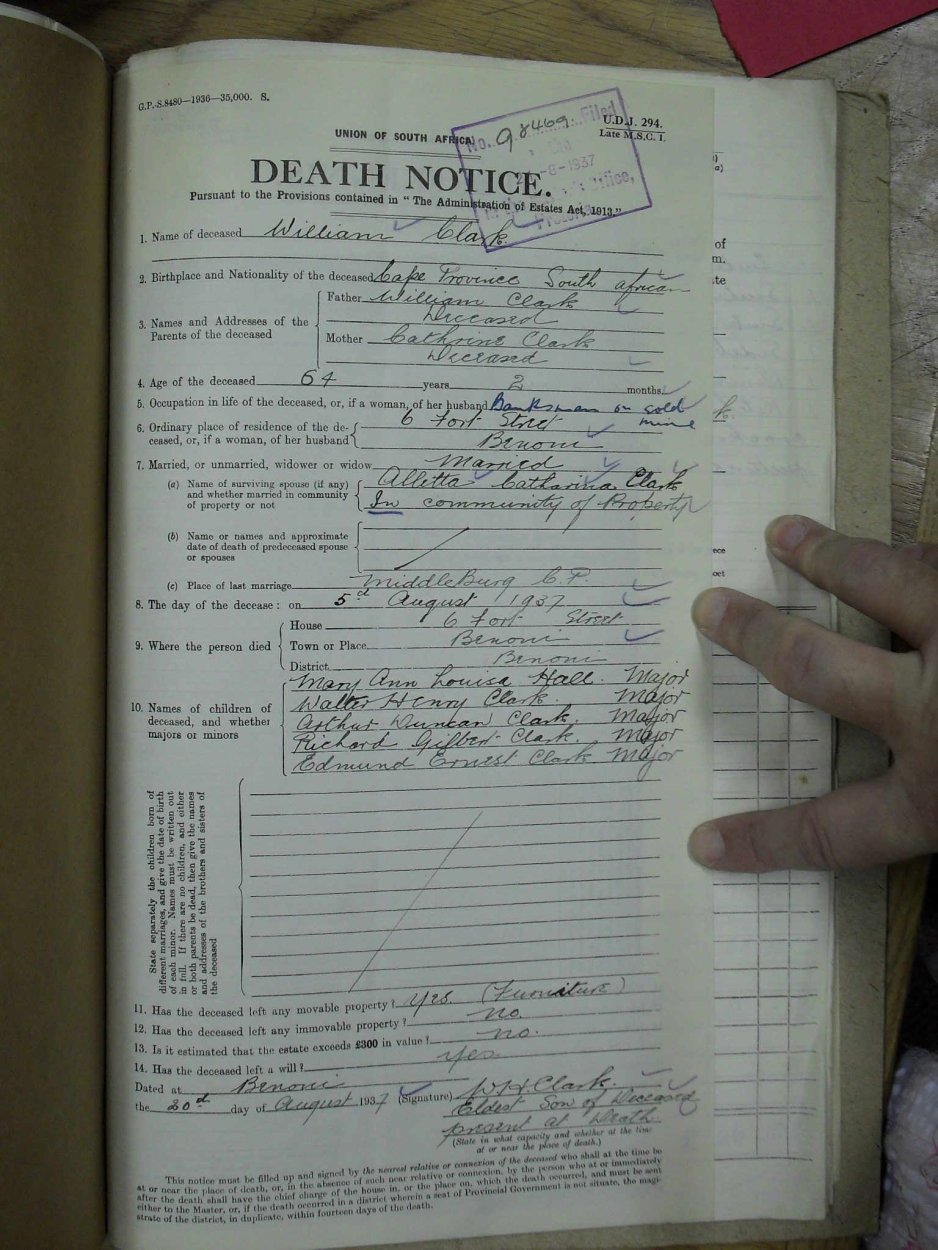 G.P.-S.8480—1936—35,000. S.
U.D.J. 294.
Late M.S.C. 1.
No. 98469 Filed
-8-1937
Office,
UNION OF SOUTH AFRICA
DEATH NOTICE.
Pursuant to the Provisions contained in "The Administration of Estates Act, 1913."
1. Name of deceased William Clark.
2. Birthplace and Nationality of the deceased Cape Province South african
3. Names and Addresses of the Parents of the deceased
Father William Clark
Deceased
Mother Cathrine Clark
Deceased
4. Age of the deceased 64 years 2 months.
5. Occupation in life of the deceased, or, if a woman, of her husband Banksman on gold mine
6. Ordinary place of residence of the de-
ceased, or, if a woman, of her husband
6 Fort Street
Benoni
7. Married, or unmarried, widower or widow Married
(a) Name of surviving spouse (if any)
and whether married in community
of property or not
Alletta Catharina Clark
In community of Property
(b) Name or names and approximate
date of death of predeceased spouse
or spouses
(c) Place of last marriage MiddleBurg C.P.
8. The day of the decease: on 5d August 1937
9. Where the person died
House 6 Fort Street
Town or Place Benoni
District Benoni
10. Names of children of
deceased, and whether
majors or minors
Mary Ann Louisa Hall. Major
Walter Henry Clark. Major
Arthur Duncan Clark, Major
Richard Gilbert Clark. Major
Edmund Ernest Clark Major
State separately the children born of
different marriages, and give the date of birth
of each minor. Names must be written out
in full. If there are no children, and either
or both parents be dead, then give the names
and addresses of the brothers and sisters of
the deceased
11. Has the deceased left any movable property? Yes. (Furniture)
12. Has the deceased left any immovable property? no.
13. Is it estimated that the estate exceeds £300 in value? no.
14. Has the deceased left a will? Yes.
Dated at Benoni
the 20d day of August 1937 (Signature) W.H. Clark.
Eldest Son of Deceased
present at Death
(State in what capacity and whether at the time
at or near the place of death.)
This notice must be filled up and signed by the nearest relative or connexion of the deceased who shall at the time be
at or near the place of death, or, in the absence of such near relative or connexion, by the person who at or immediately
after the death shall have the chief charge of the house in, or the place on, which the death occurred, and must be sent
either to the Master, or, if the death occurred in a district wherein a seat of Provincial Government is not situate, the magi-
strate of the district, in duplicate, within fourteen days of the death.